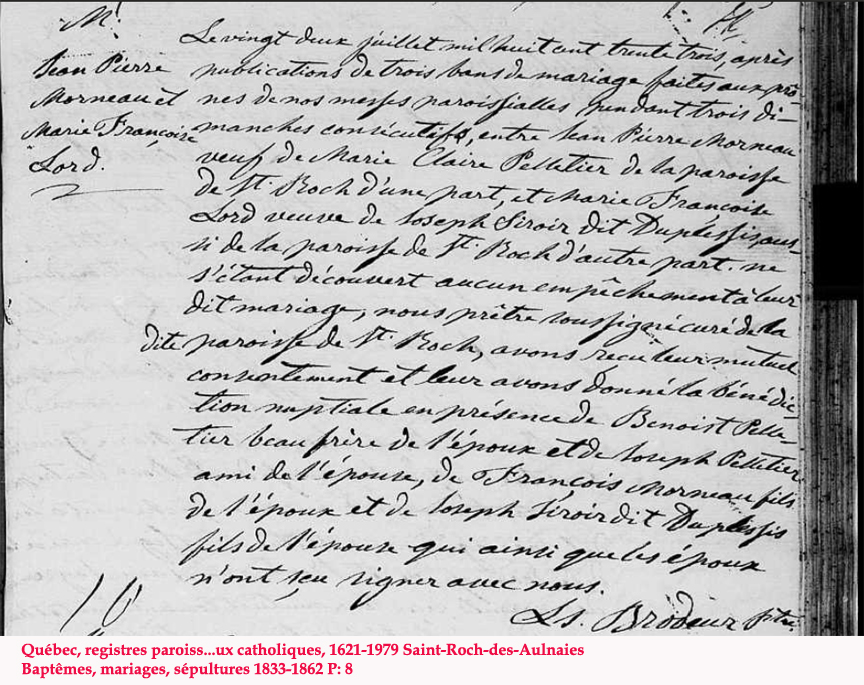 M.
Jean Pierre
Morneau et
Marie Françoise
Lord.
Le vingt deux juillet mil huit cent trente trois, après
publications de trois bans de mariage faites aux prô-
nes de nos messes paroissialles pendant trois di-
manches consécutifs, entre Jean Pierre Morneau
veuf de Marie Claire Pelletier de la paroisse
de St. Roch d'une part, et Marie Françoise
Lord veuve de Joseph Siroir dit Duplessis aus-
si de la paroisse de St. Roch d'autre part. ne
s'étant découvert aucun empêchement à leur
dit mariage, nous prêtre soussigné curé de la
dite paroisse de St. Roch, avons reçu leur mutuel
consentement et leur avons donné la bénédic-
tion nuptiale en présence de Benoist Pelle-
tier beau frère de l'époux et de Joseph Pelletier
ami de l'épouse, de François Morneau fils
de l'époux et de Joseph Siroir dit Duplessis
fils de l'épouse qui ainsi que les époux
n'ont sçu signer avec nous.
Ls. Brodeur ptre.
Québec, registres paroiss...ux catholiques, 1621-1979 Saint-Roch-des-Aulnaies
Baptêmes, mariages, sépultures 1833-1862 P: 8